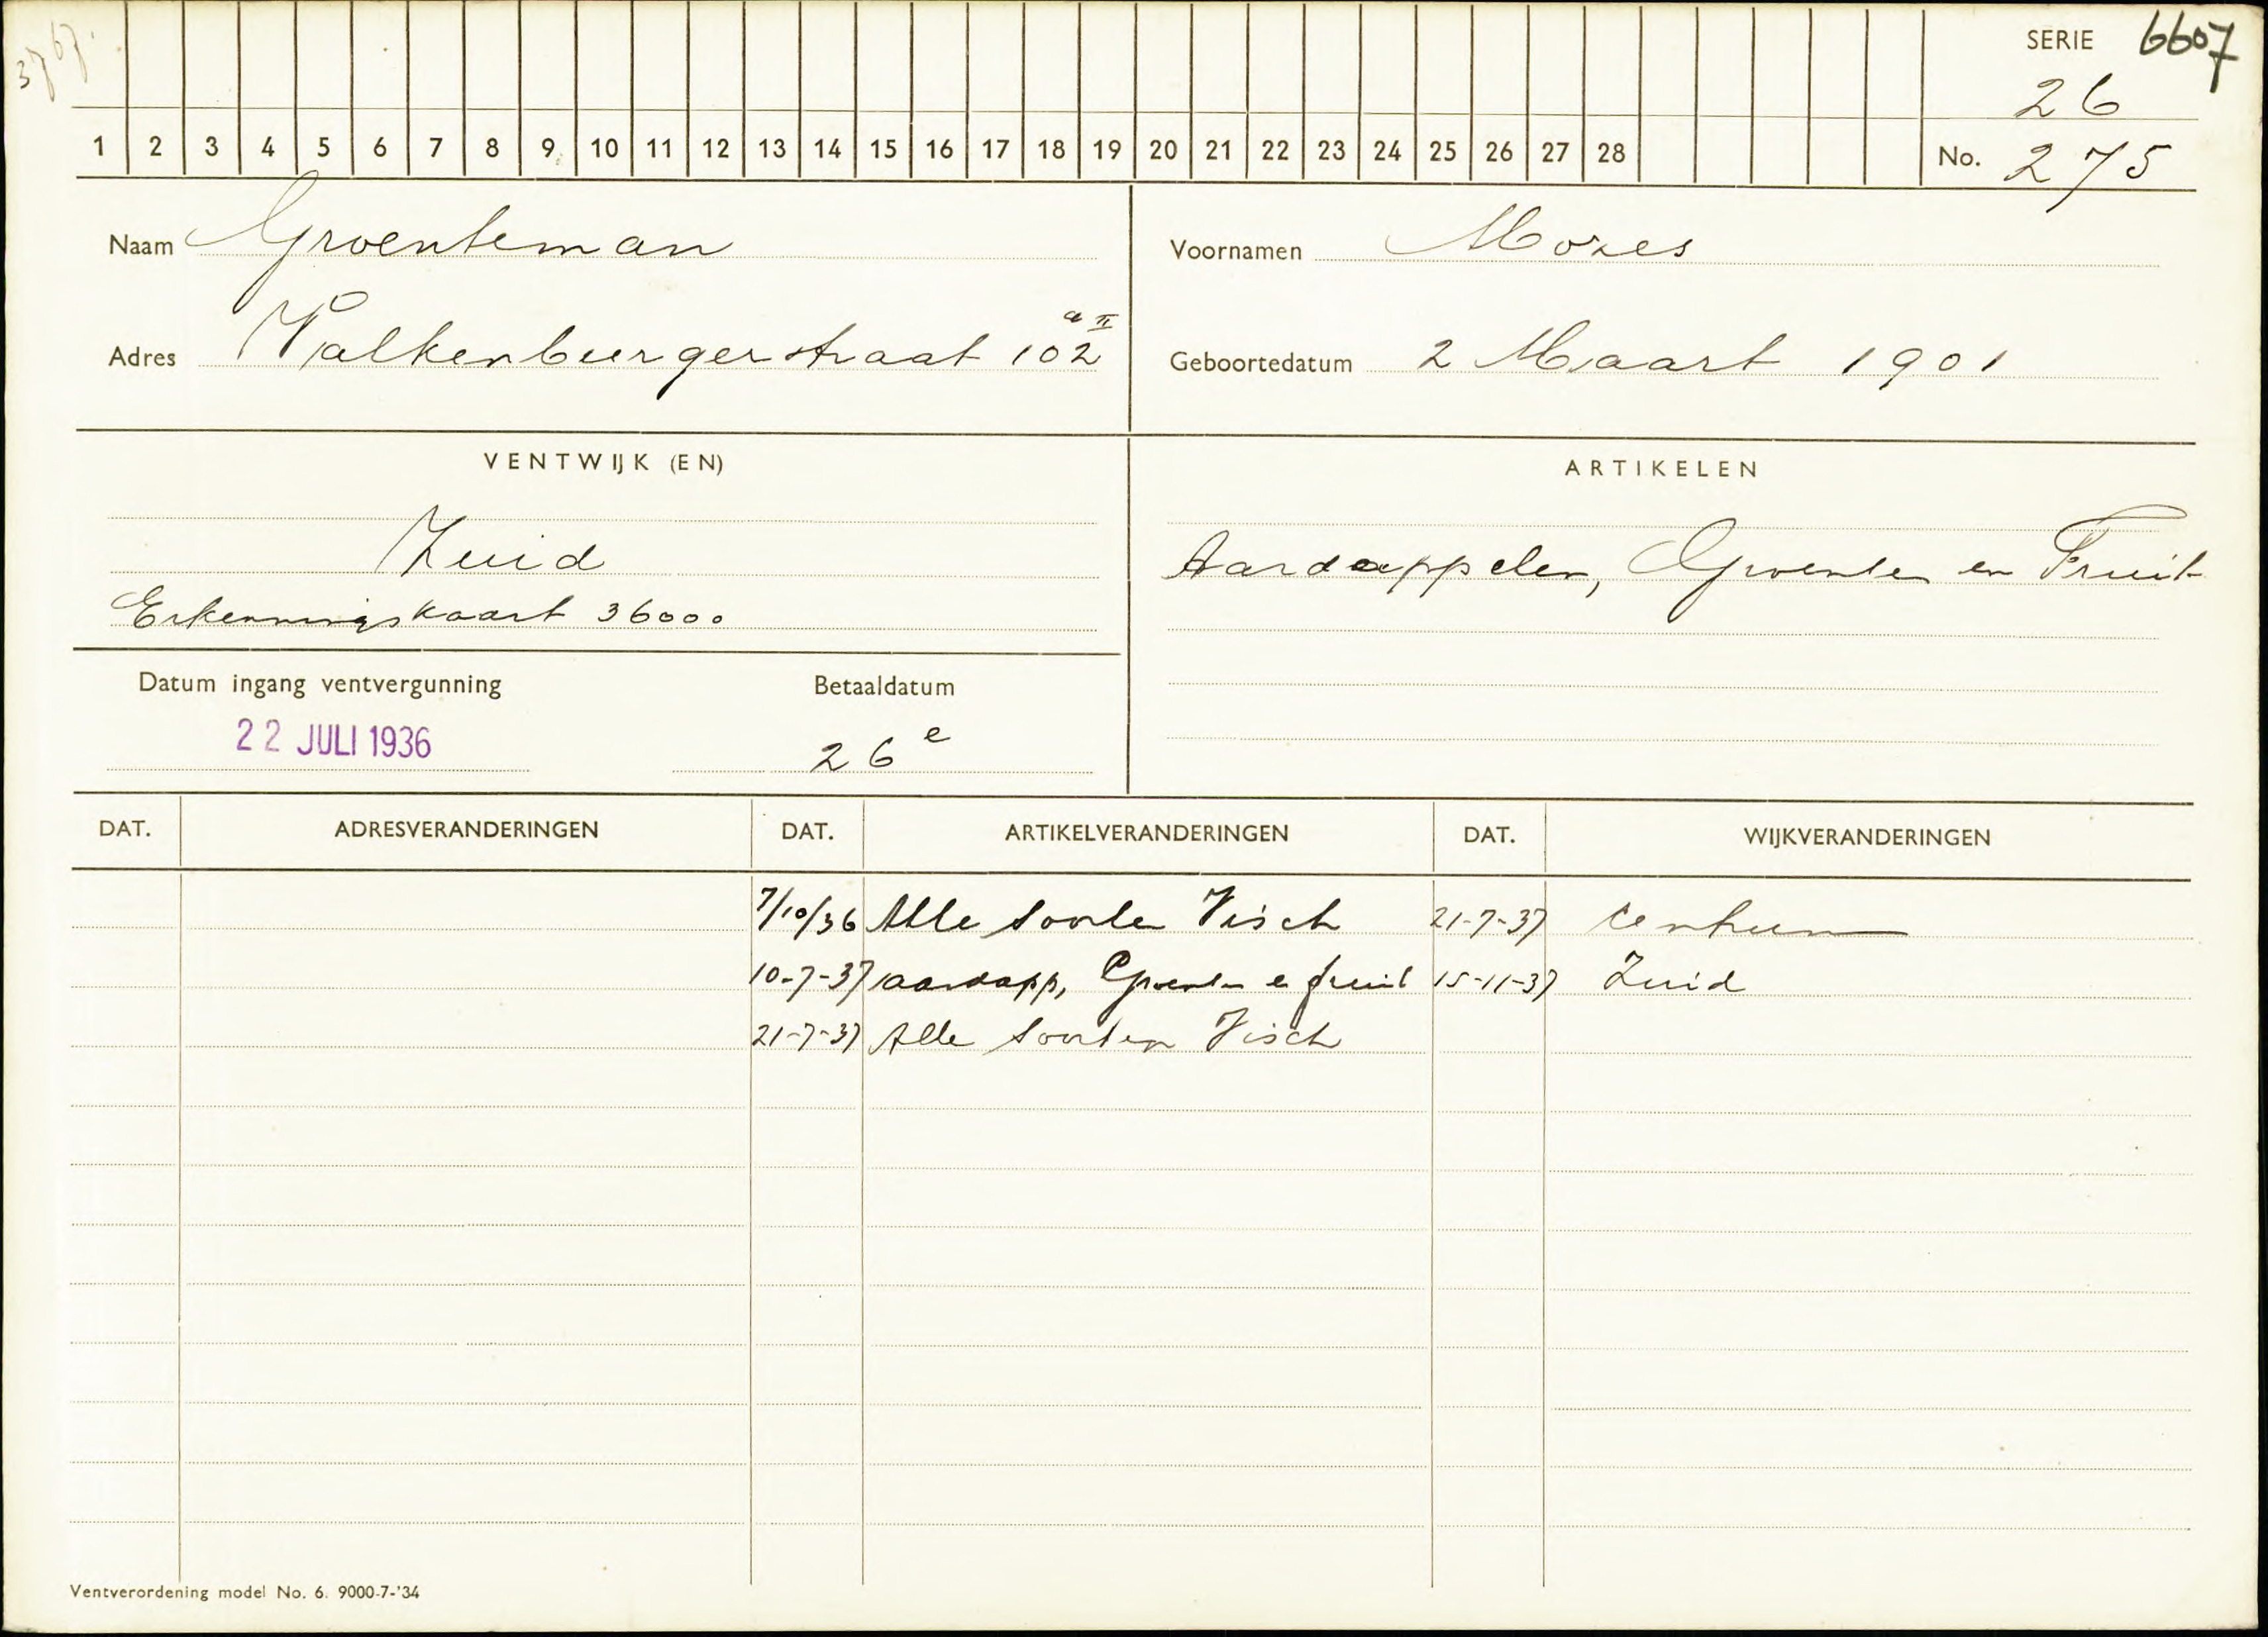 3767.
SERIE 6607
26
1 2 3 4 5 6 7 8 9 10 11 12 13 14 15 16 17 18 19 20 21 22 23 24 25 26 27 28 No. 275
Naam Groenteman Voornamen Mozes
Adres Valkenburgerstraat 102 a II Geboortedatum 2 Maart 1901
VENTWIJK (EN) ARTIKELEN
Zuid Aardappelen, Groenten en Fruit
Erkenningskaart 36000
Datum ingang ventvergunning Betaaldatum
22 JULI 1936 26e
DAT. ADRESVERANDERINGEN DAT. ARTIKELVERANDERINGEN DAT. WIJKVERANDERINGEN
7/10/36 Alle soorten Visch 21-7-37 Centrum
10-7-37 aardapp, Groenten en fruit 15-11-37 Zuid
21-7-37 Alle soorten Visch
Ventverordening model No. 6. 9000-7-'34